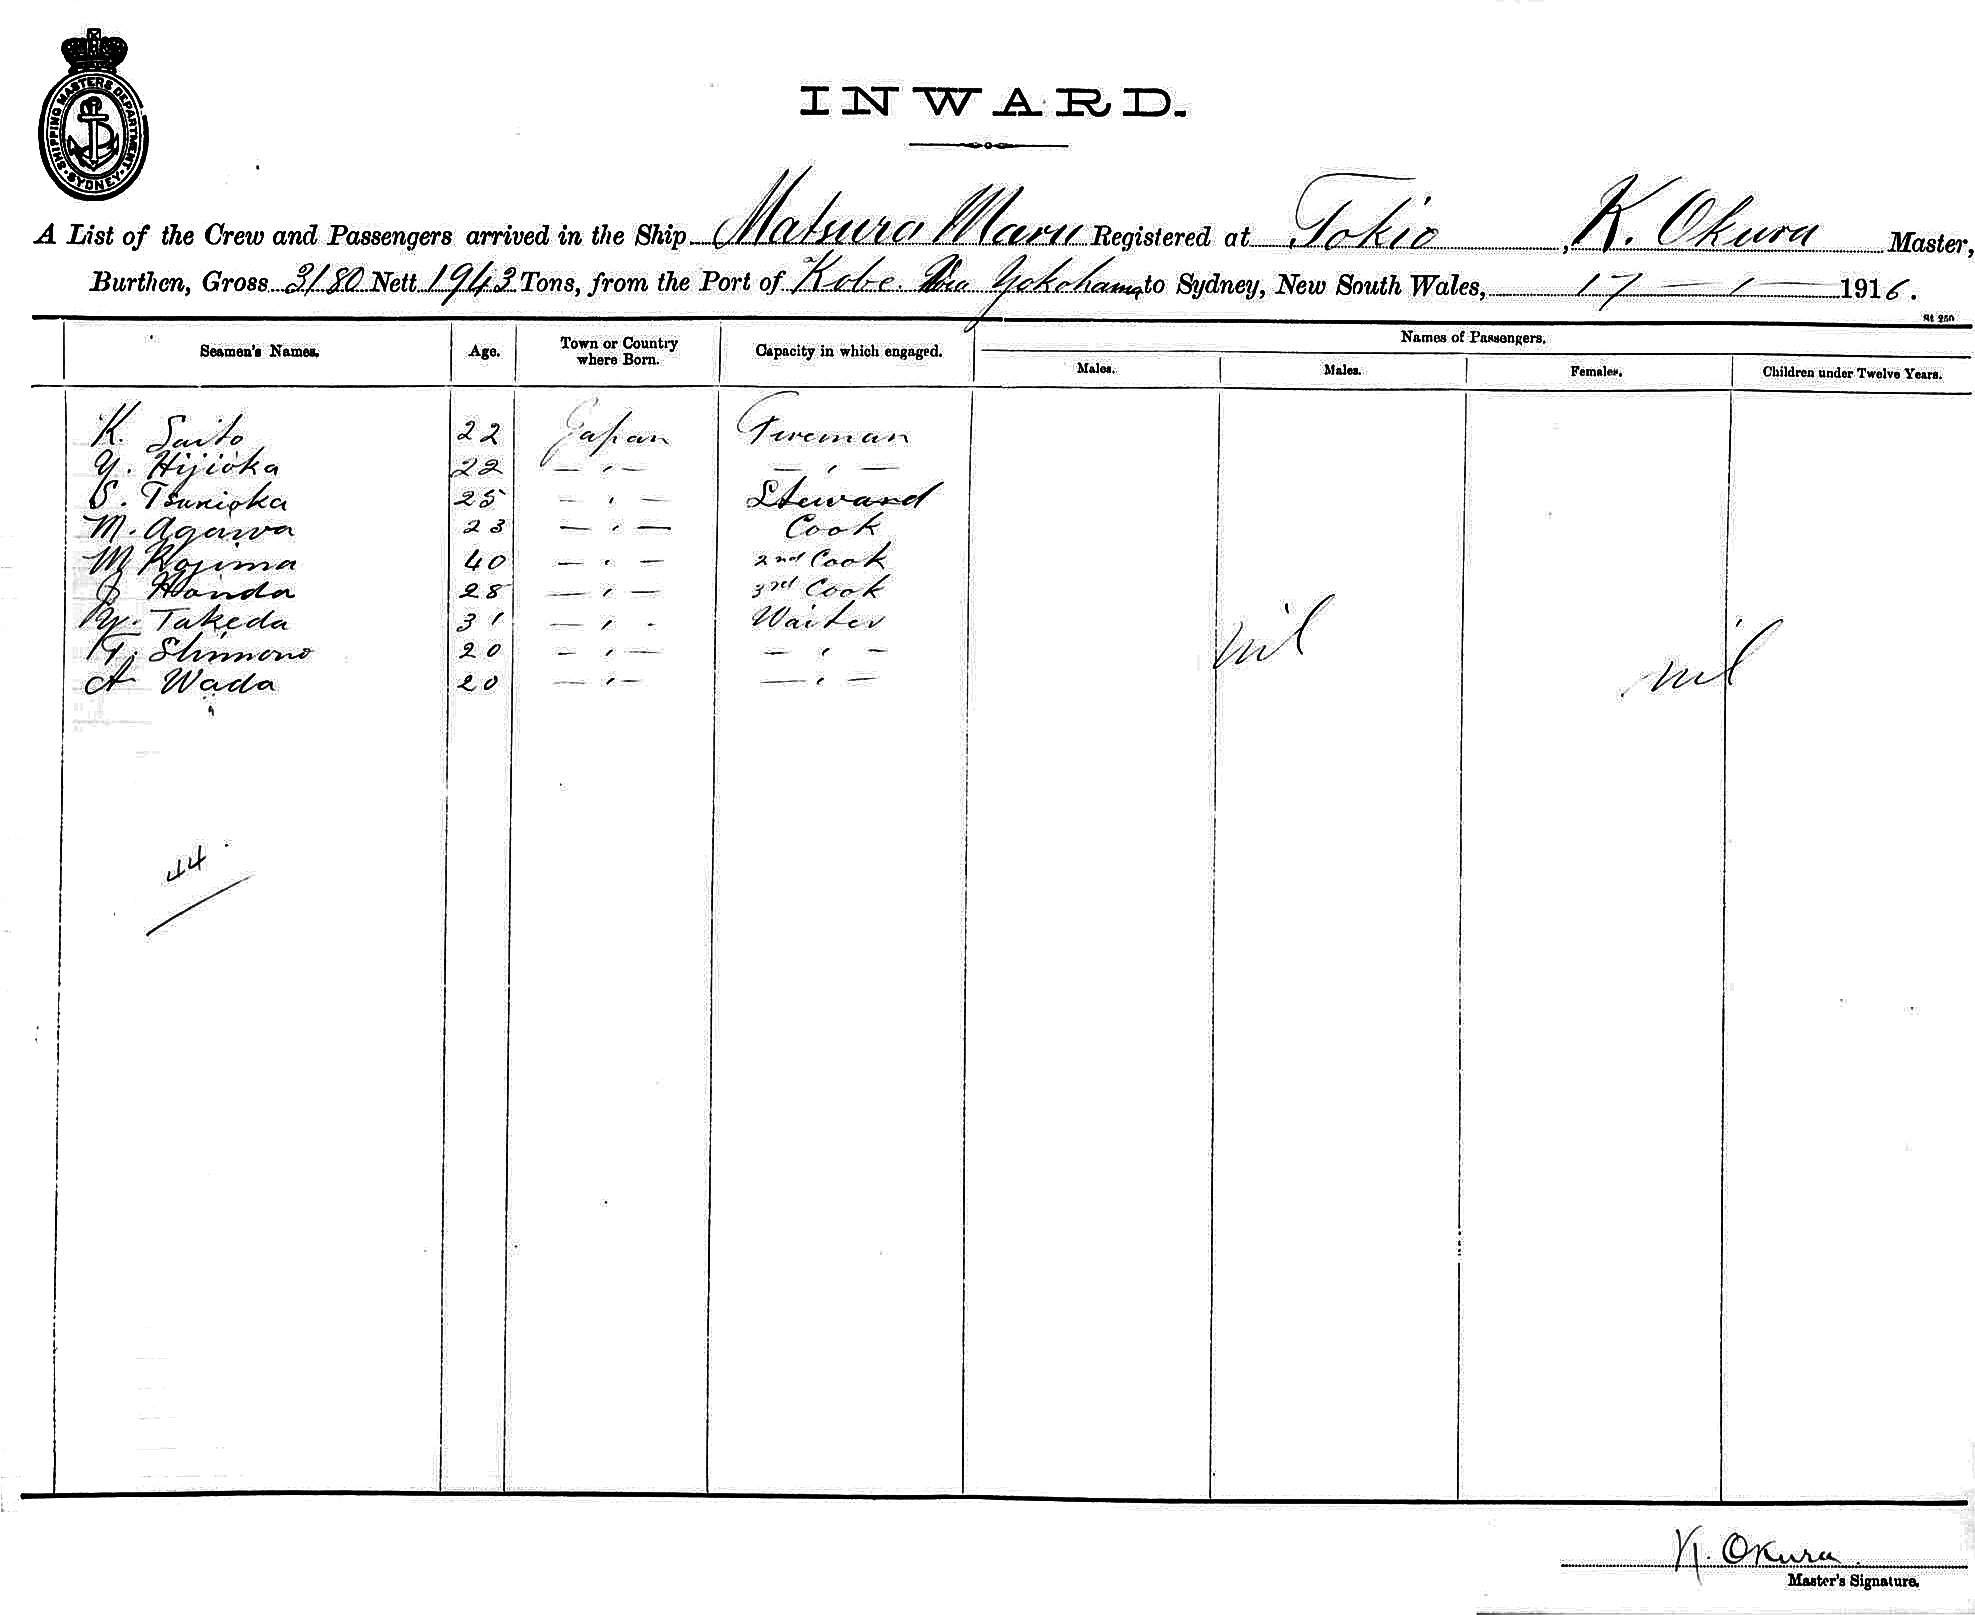 SHIPPING MASTERS DEPARTMENT
SYDNEY
INWARD.
A List of the Crew and Passengers arrived in the Ship Matsura Maru Registered at Tokio, K. Okura Master,
Burthen, Gross 3180 Nett 1943 Tons, from the Port of Kobe. Via Yokohama to Sydney, New South Wales, 17 — 1 — 1916.
St 250
Seamen's Names. Age. Town or Country where Born. Capacity in which engaged. Names of Passengers.
Males. Males. Females. Children under Twelve Years.
K. Saito 22 Japan Fireman
Y. Hijioka 22 — " — — " —
S. Tsukioka 25 — " — Steward
M. Agawa 23 — " — Cook
M Kojima 40 — " — 2nd Cook
Honda 28 — " — 3rd Cook
Y. Takeda 31 — " - Waiter
Shimono 20 — " — — " —
A Wada 20 — " — — " —
nil nil
44
K. Okura.
Master's Signature.